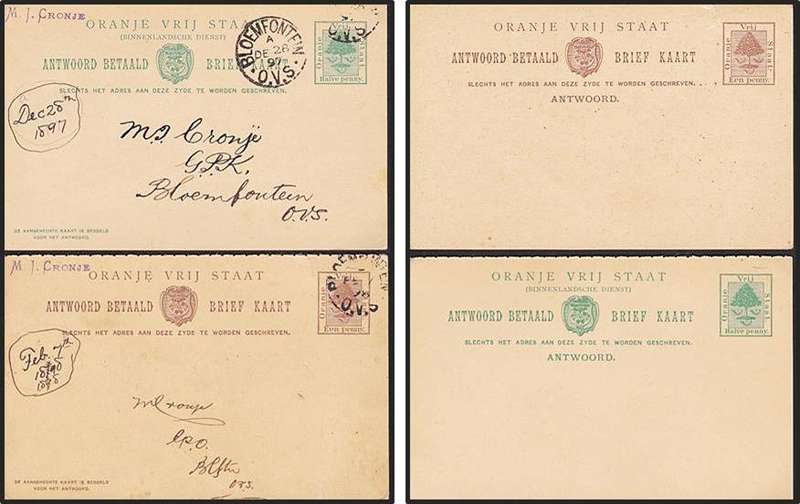 M. J. CRONJE
ORANJE VRIJ STAAT
(BINNENLANDSCHE DIENST)
ANTWOORD BETAALD BRIEF KAART
SLECHTS HET ADRES AAN DEZE ZYDE TE WORDEN GESCHREVEN.
Vrij
Oranje
Staat
Halve penny.
BLOEMFONTEIN
A
DE 28
97
O.V.S.
O.V.S
Dec 28th
1897
M. J. Cronjé
G.P.K.
Bloemfontein
O.V.S.
DE AANGEHECHTE KAART IS BESTELD
VOOR HET ANTWOORD.
ORANJE VRIJ STAAT
ANTWOORD BETAALD BRIEF KAART
SLECHTS HET ADRES AAN DEZE ZYDE TE WORDEN GESCHREVEN.
ANTWOORD.
Vrij
Oranje
Staat
Een penny.
M. J. CRONJE
ORANJE VRIJ STAAT
ANTWOORD BETAALD BRIEF KAART
SLECHTS HET ADRES AAN DEZE ZYDE TE WORDEN GESCHREVEN.
Vrij
Oranje
Een penny.
BLOEMFONTEIN
O.V.S
Feb. 7th
1898
MCronje
G.P.O.
Blftn
O.V.S.
DE AANGEHECHTE KAART IS BESTELD
VOOR HET ANTWOORD.
ORANJE VRIJ STAAT
(BINNENLANDSCHE DIENST)
ANTWOORD BETAALD BRIEF KAART
SLECHTS HET ADRES AAN DEZE ZYDE TE WORDEN GESCHREVEN.
ANTWOORD.
Vrij
Oranje
Staat
Halve penny.